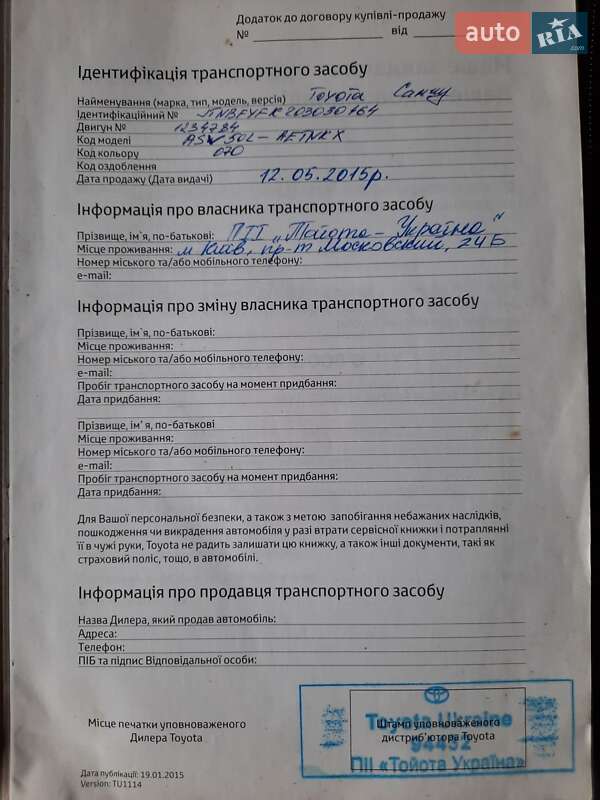 Додаток до договору купівлі-продажу
№ від
auto RIA.com
Ідентифікація транспортного засобу
Найменування (марка, тип, модель, версія) Toyota Camry
Ідентифікаційний № JTNBFYFK203030164
Двигун № 1234784
Код моделі ASV50L-AETNKX
Код кольору 070
Код оздоблення
Дата продажу (Дата видачі) 12.05.2015р.
Інформація про власника транспортного засобу
Прізвище, ім'я, по-батькові: ПІІ „Тойота-Україна"
Місце проживання: м Київ, пр-т Московский, 24Б
Номер міського та/або мобільного телефону:
e-mail:
Інформація про зміну власника транспортного засобу
Прізвище, ім`я, по-батькові:
Місце проживання:
Номер міського та/або мобільного телефону:
e-mail:
Пробіг транспортного засобу на момент придбання:
Дата придбання:
Прізвище, ім' я, по-батькові
Місце проживання:
Номер міського та/або мобільного телефону:
e-mail:
Пробіг транспортного засобу на момент придбання:
Дата придбання:
Для Вашої персональної безпеки, а також з метою запобігання небажаних наслідків,
пошкодження чи викрадення автомобіля у разі втрати сервісної книжки і потраплянні
її в чужі руки, Toyota не радить залишати цю книжку, а також інші документи, такі як
страховий поліс, тощо, в автомобілі.
Інформація про продавця транспортного засобу
Назва Дилера, який продав автомобіль:
Адреса:
Телефон:
ПІБ та підпис Відповідальної особи:
Місце печатки уповноваженого
Дилера Toyota
Штамп уповноваженого
дистриб'ютора Toyota
Toyota Ukraine
94452
ПІІ «Тойота Україна»
Дата публікації: 19.01.2015
Version: TU1114